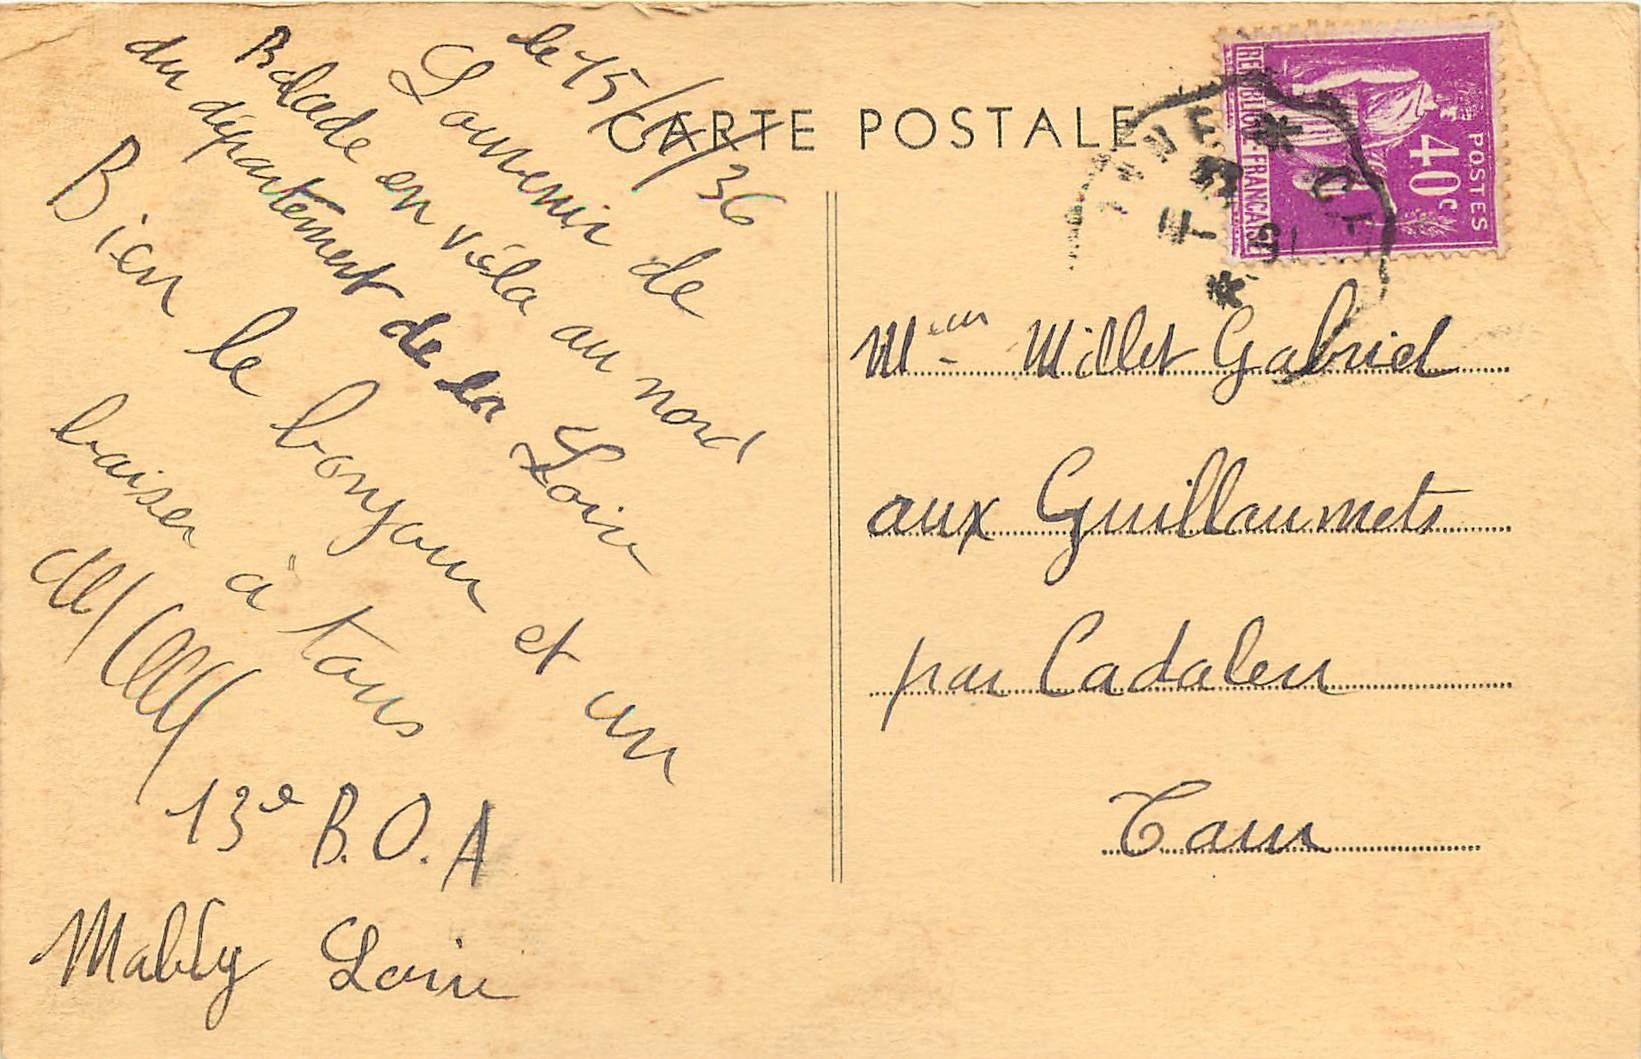 CARTE POSTALE
le 15/ /36
Souvenir de
Balade en véla au nord
du département de la Loire
Bien le bonjour et un
baiser à tous
13e B.O.A
Mably Loire
POSTES
40c
REPUBLIQUE-FRANÇAISE
Millet Gabriel
aux Guillaumets
par Cadalen
Tarn